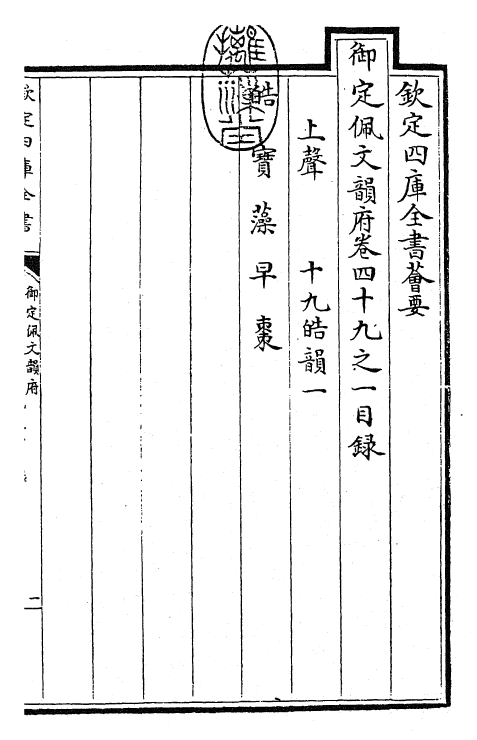 欽定四庫全書薈要
御定佩文韻府卷四十九之一目録
上聲　十九皓韻一
皓寶藻早棗
欽定四庫全書
御定佩文韻府
二